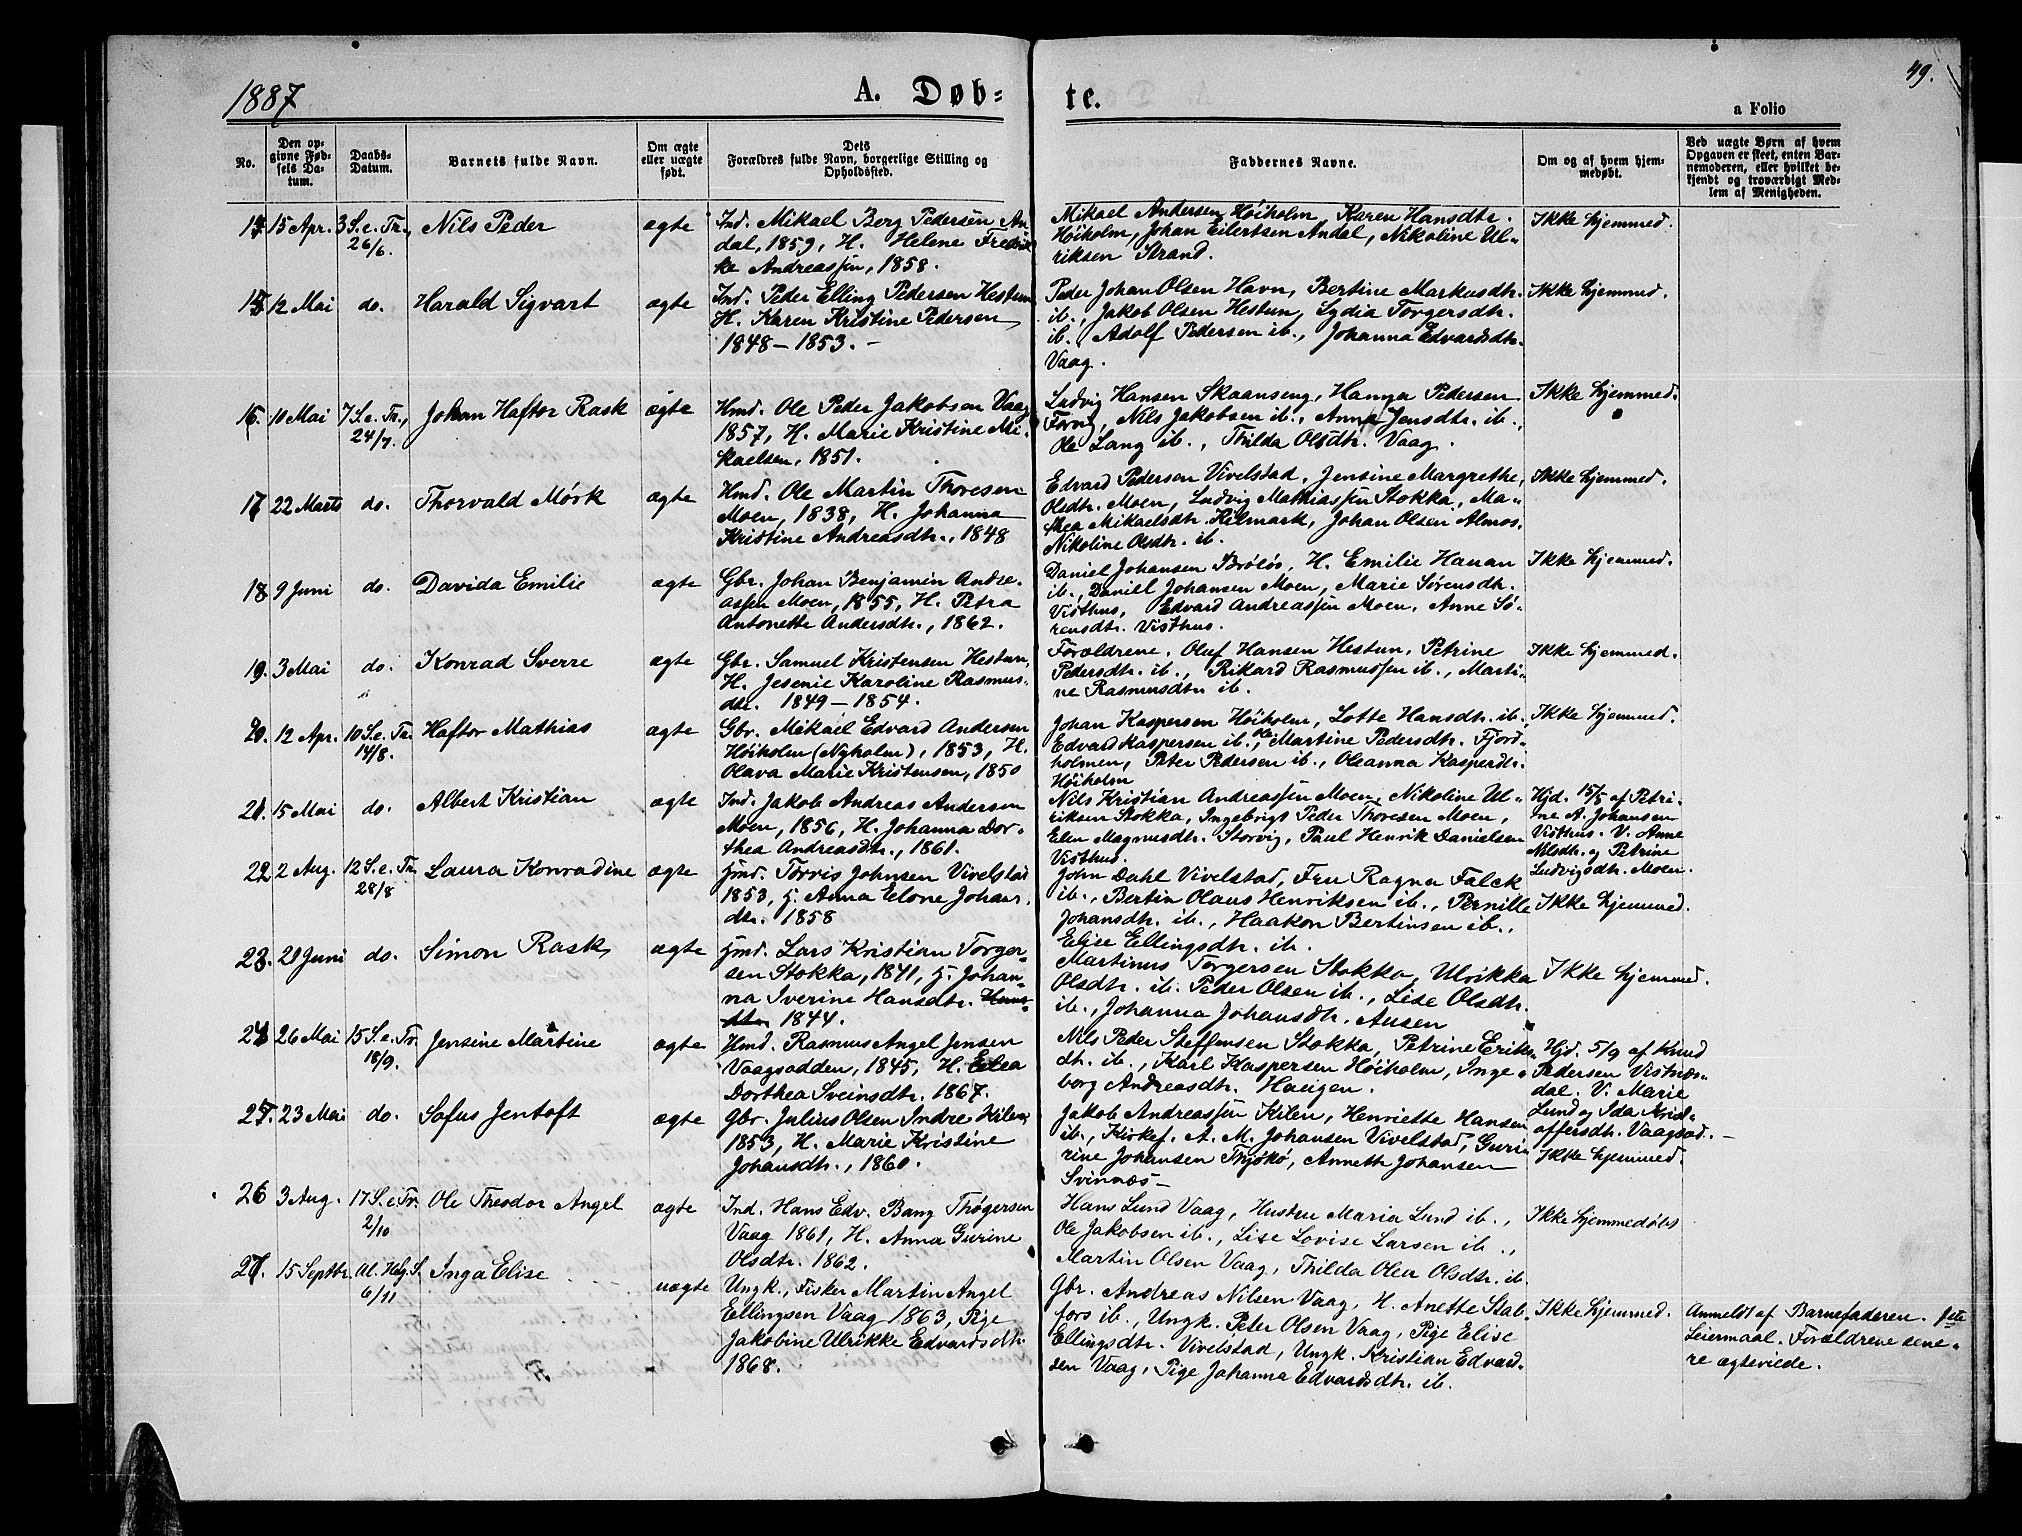 1887
A. Døb-
te.
49.
a Folio
No.
Den op-
givne Fød-
sels Da-
tum.
Daabs-
Datum.
Barnets fulde Navn.
Om ægte
eller uægte
født.
Dets
Forældres fulde Navn, borgerlige Stilling og
Opholdssted.
Faddernes Navne.
Om og af hvem hjem-
medøbt.
Ved uægte Børn af hvem
Opgaven er skeet, enten Bar-
nemoderen, eller hvilket be-
kjendt og troværdigt Med-
lem af Menigheden.
14. 15 Apr. 3 S. e. Tr. 26/6. Nils Peder ægte
Ind. Mikael Berg Pedersen An-
dal, 1859, H. Helene Fredrik-
ke Andreassen, 1858.
Mikael Andersen Høiholm, Karen Hansdtr.
Høiholm, Johan Eilertsen Andal, Nikoline Ul-
riksen Strand.
Ikke hjemmed.
15. 12 Mai do. Harald Sigvart ægte
Ind. Peder Elling Pedersen Hestun,
H. Karen Kristine Pedersen
1848 – 1853. –
Peder Johan Olsen Havn, Bertine Markusdtr.
ib., Jakob Olsen Hestun, Lydia Torgersdtr.
ib., Adolf Pedersen ib., Johanna Edvardsdtr.
Vaag.
Ikke hjemmed.
16. 10 Mai 7 S. e. Tr., 24/7. Johan Haftor Rask ægte
Hmd. Ole Peder Jakobsen Vaag
1857, H. Marie Kristine Mi-
kaelsen, 1851.
Ludvig Hansen Skaanseng, Hanna Pedersen
Forvig, Nils Jakobsen ib., Anna Jensdtr. ib.,
Ole Lang ib., Thilda Olsdtr. Vaag.
Ikke hjemmed.
17 22 Marts do. Thorvald Mørk ægte
Hmd. Ole Martin Thoresen
Moen, 1838, H. Johanna
Kristine Andreasdtr., 1848
Edvard Pederson Vivelstad, Jensine Margrethe,
Olsdtr. Moen, Ludvig Mathiassen Stokka, Ma-
thea Mikaelsdtr. Kilmark, Johan Olsen Almos,
Nikoline Olsdtr. ib.
Ikke hjemmed.
18 9 Juni do. Davida Emilie ægte
Gbr. Johan Benjamin Andre-
assen Moen, 1855, H. Petra
Antonette Andersdtr., 1862.
Daniel Johansen Brøløs, H. Emilie Hanan
ib., Daniel Johansen Moen, Marie Sørensdtr.
Visthus, Edvard Andreassen Moen, Anne Sø-
rensdtr. Visthus.
Ikke hjemmed.
19. 3 Mai do. Konrad Sverre ægte
Gbr. Samuel Kristensen Hestun,
H. Jesenie Karoline Rasmus-
dtr. 1849 – 1854.
Forældrene, Oluf Hansen Hestun, Petrine
Pedersdtr. ib., Rikard Rasmussen ib., Marti-
ne Rasmusdtr. ib.
Ikke hjemmed.
20. 12 Apr. 10 S. e. Tr. 14/8. Haftor Mathias ægte
Gbr. Mikael Edvard Andersen
Høiholm (Nyholm), 1853, H.
Olava Marie Kristensen, 1850
Johan Kaspersen Høiholm, Lotte Hansdtr. ib.,
Edvard Kaspersen ib., Ole Martine Pedersdtr. Fjord-
holmen, Peter Pedersen ib., Oleanna Kasperdtr.
Høiholm
Ikke hjemmed.
21. 15 Mai do. Albert Kristian ægte
Ind. Jakob Andreas Andersen
Moen, 1856, H. Johanna Dor-
thea Andreasdtr., 1861.
Nils Kristian Andreassen Moen, Nikoline Ul-
riksen Stokka, Ingebrigt Peder Thoresen Moen,
Elen Magnusdtr. Storvig, Paul Henrik Danielsen
Visthus.
Hjd. 15/5 af Petri-
ne A. Johansen
Visthus. V. Anne
Nilsdtr. og Petrine
Ludvigsdtr. Moen.
22 2 Aug. 12 S. e. Tr. 28/8 Laura Konradine ægte
Hmd. Torris Johnsen Vivelstad
1853, H. Anna Elone Johans-
dtr. 1858
John Dahl Vivelstad, Fru Ragna Falck
ib., Bertin Olaus Henriksen ib., Pernille
Johansdtr. ib., Haakon Bertinsen ib.,
Elise Ellingsdtr. ib.
Ikke hjemmed.
23. 21 Juni do. Simon Rask ægte
Hmd. Lars Kristian Torger-
sen Stokka, 1841, H. Johan-
na Iverine Hansdtr. Hans-
dtr. 1844.
Martinus Torgersen Stokka, Ulrikka
Olsdtr. ib. Peder Olsen ib., Lise Olsdtr.
ib., Johanna Johansdtr. Ausen
Ikke hjemmed.
24 26 Mai 15 S. e. Tr. 18/9. Jensine Martine ægte
Hmd. Rasmus Angel Jensen
Vaagsodden, 1845, H. Elea
Dorthea Sveinsdtr. 1867.
Nils Peder Steffensen Stokka, Petrine Eriks-
dtr. ib., Karl Kaspersen Høiholm, Inge-
borg Andreasdtr. Haugen.
Hjd. 5/9 af Knud
Pedersen Vistnæs-
dal. V. Marie
Lund og Ida Krist-
offersdtr. Vaagsod. –
25. 23 Mai do. Sofus Jentoft ægte
Gbr. Julius Olsen Indre Kilen
1853, H. Marie Kristine
Johansdtr., 1860.
Jakob Andreassen Kilen, Henriette Hansen
ib., Kirkef. A. M. Johansen Vivelstad, Guri-
rine Johansen Thjøkø, Anneth Johansen
Svinnæs –
Ikke hjemmed.
26 3 Aug. 17 S. e. Tr. 2/10 Ole Theodor Angel ægte
Ind. Hans Edv. Bang Thøgersen
Vaag 1861, H. Anna Gurine
Olsdtr. 1862.
Hans Lund Vaag, Hustru Maria Lund ib.,
Ole Jakobsen ib., Lise Lovise Larsen ib.,
Martin Olsen Vaag, Thilda Olea Olsdtr. ib.
Ikke hjemmedøbt
27. 15 Septbr. Al. Helg. S. 6/11 Inga Elise uægte
Ungk., Fisker Martin Angel
Ellingsen Vaag 1863, Pige
Jakobine Ulrikke Edvardsdtr.
1868.
Gbr. Andreas Nilsen Vaag, H. Anette Stab-
fors ib., Ungk. Peter Olsen Vaag, Pige Elise
Ellingsdtr. Vivelstad, Ungk. Kristian Edvard-
sen Vaag, Pige Johanna Edvardsdtr. ib.
Ikke hjemmed.
Anmeldt af Barnefaderen. 1ste
Leiermaal. Forældrene sene-
re ægteviede.